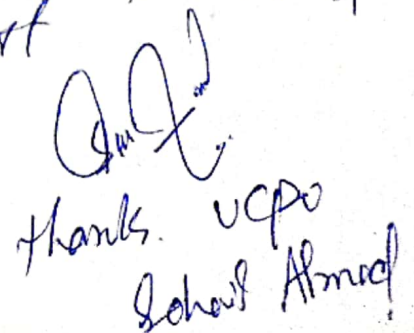 Thanks. UCPO
Sohail Ahmad